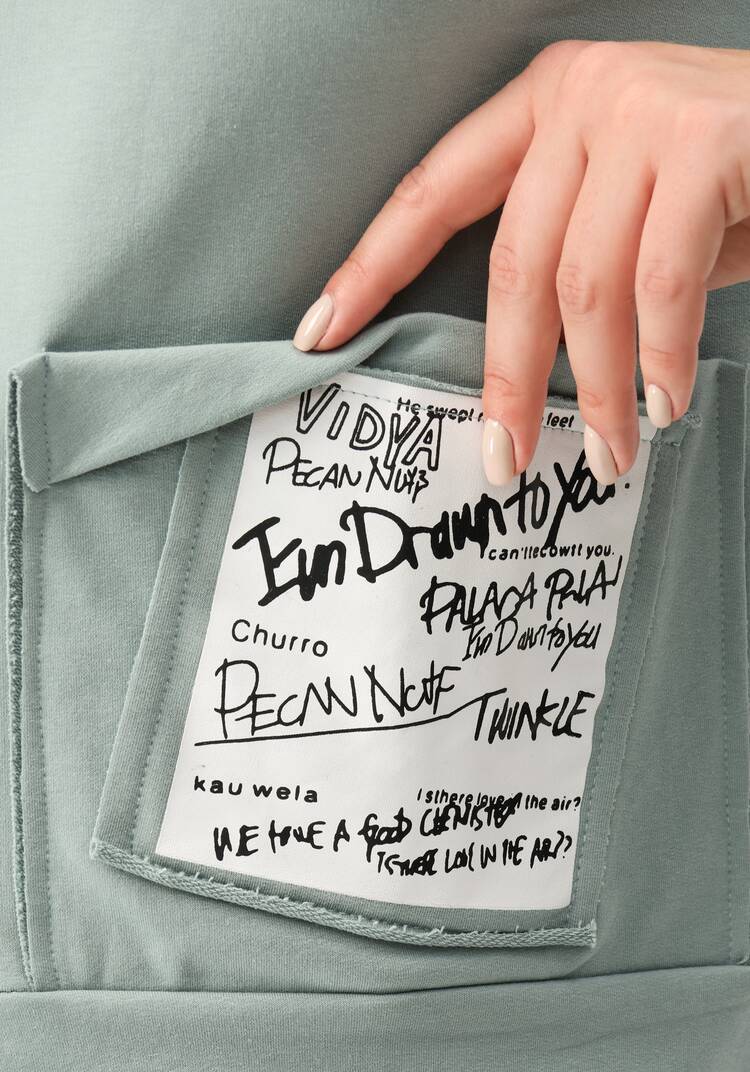 VIDYA
He swept
feet
PECAN NUTS
I'm Drawn to You.
can't
you.
PALADA PALAI
I'm Drawn to You
Churro
PECAN NUTS
TWINKLE
kau wela
Is there love in the air?
WE HAVE A GOOD CHEMISTRY
IS THERE LOVE IN THE AIR??